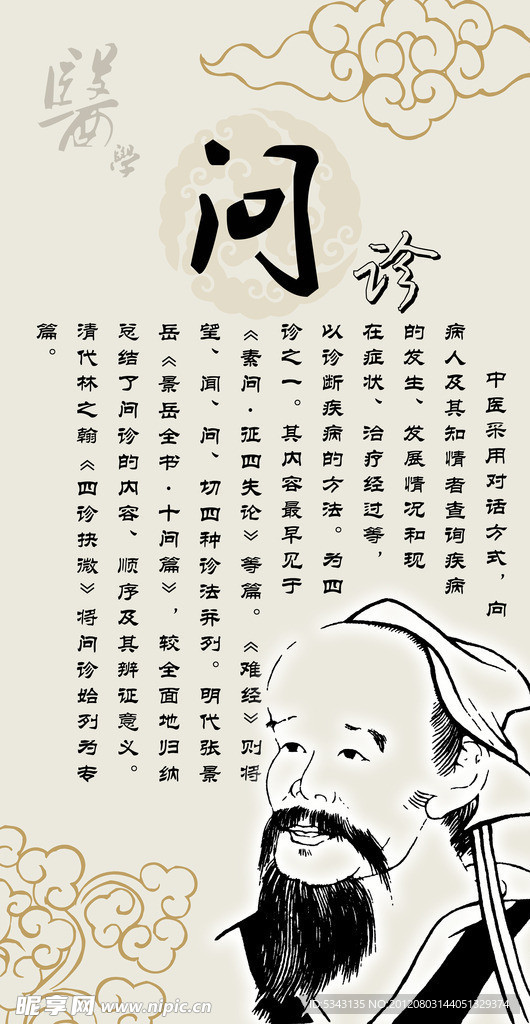 醫
學
问
诊
中医采用对话方式，向
病人及其知情者查询疾病
的发生、发展情况和现
在症状、治疗经过等，
以诊断疾病的方法。为四
诊之一。其内容最早见于
《素问·征四失论》等篇。《难经》则将
望、闻、问、切四种诊法并列。明代张景
岳《景岳全书·十问篇》，较全面地归纳
总结了问诊的内容、顺序及其辨证意义。
清代林之翰《四诊抉微》将问诊始列为专
篇。
昵享网 www.nipic.cn
ID:5343135 NO:20120803144051329374